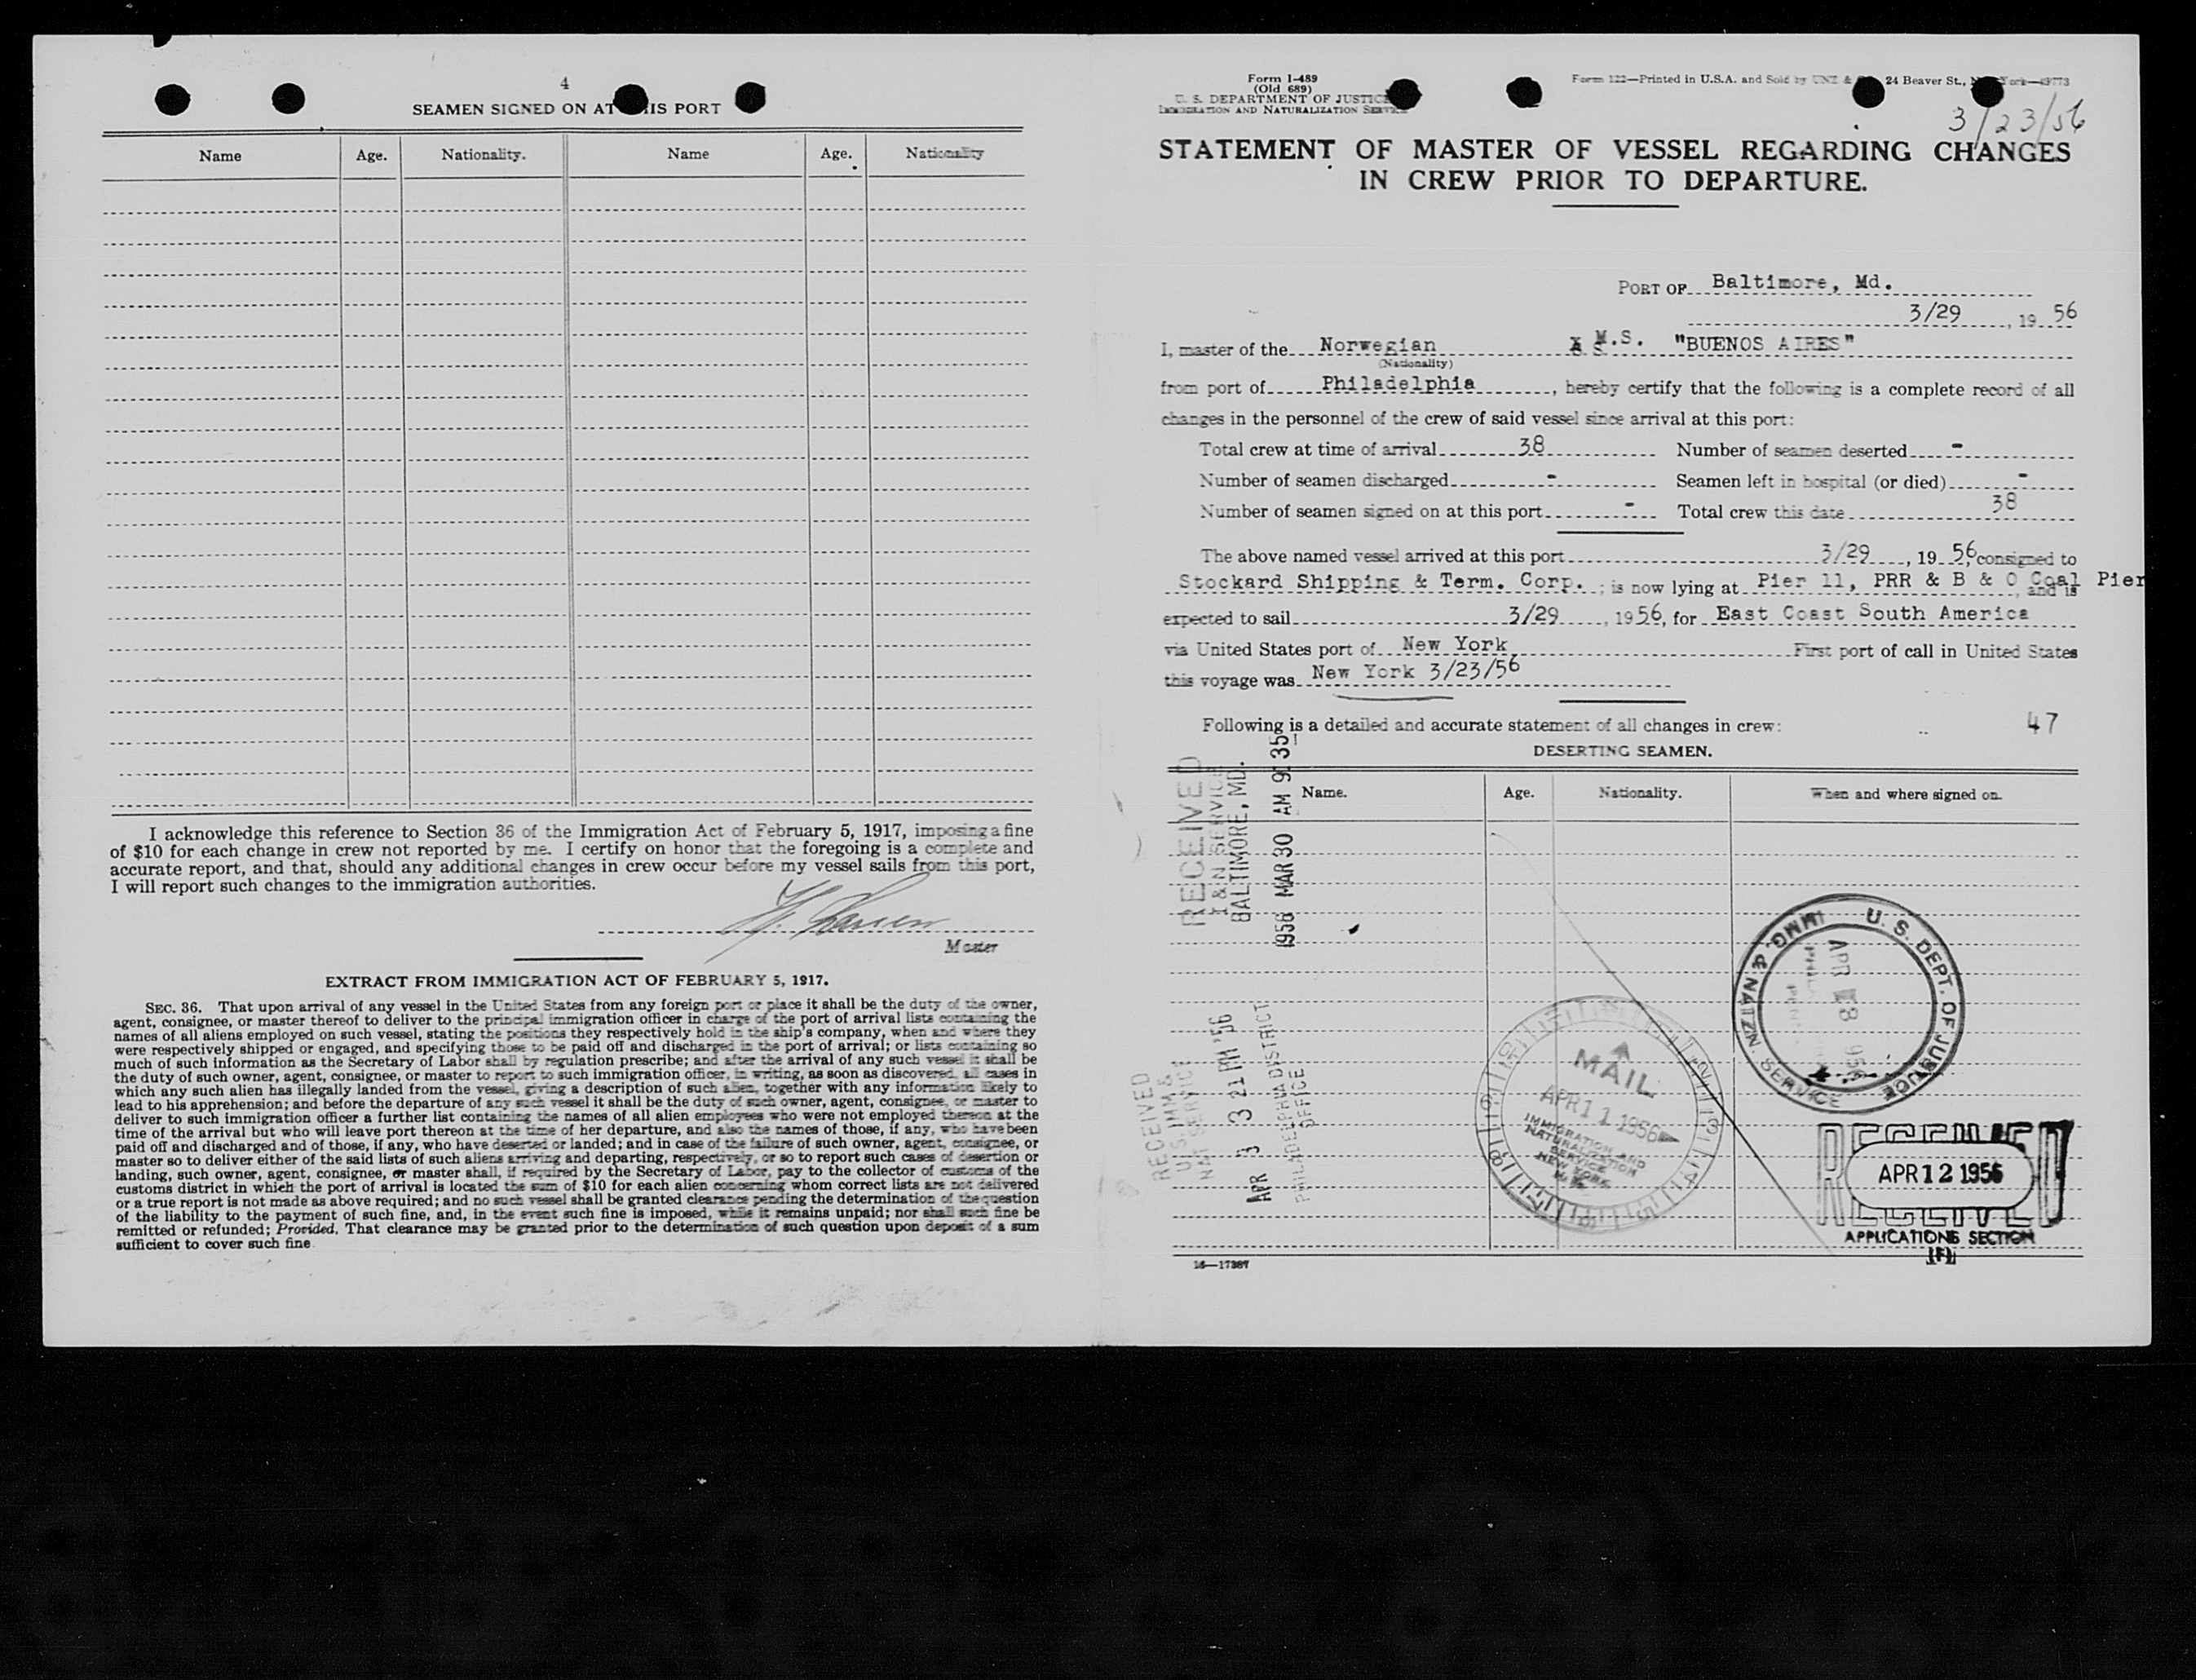 4
SEAMEN SIGNED ON AT THIS PORT
Name Age. Nationality. Name Age. Nationality
I acknowledge this reference to Section 36 of the Immigration Act of February 5, 1917, imposing a fine
of $10 for each change in crew not reported by me. I certify on honor that the foregoing is a complete and
accurate report, and that, should any additional changes in crew occur before my vessel sails from this port,
I will report such changes to the immigration authorities.
Master
EXTRACT FROM IMMIGRATION ACT OF FEBRUARY 5, 1917.
SEC. 36. That upon arrival of any vessel in the United States from any foreign port or place it shall be the duty of the owner,
agent, consignee, or master thereof to deliver to the principal immigration officer in charge of the port of arrival lists containing the
names of all aliens employed on such vessel, stating the positions they respectively hold in the ship's company, when and where they
were respectively shipped or engaged, and specifying those to be paid off and discharged in the port of arrival; or lists containing so
much of such information as the Secretary of Labor shall by regulation prescribe; and after the arrival of any such vessel it shall be
the duty of such owner, agent, consignee, or master to report to such immigration officer, in writing, as soon as discovered, all cases in
which any such alien has illegally landed from the vessel, giving a description of such alien, together with any information likely to
lead to his apprehension; and before the departure of any such vessel it shall be the duty of such owner, agent, consignee, or master to
deliver to such immigration officer a further list containing the names of all alien employees who were not employed thereon at the
time of the arrival but who will leave port thereon at the time of her departure, and also the names of those, if any, who have been
paid off and discharged and of those, if any, who have deserted or landed; and in case of the failure of such owner, agent, consignee, or
master so to deliver either of the said lists of such aliens arriving and departing, respectively, or so to report such cases of desertion or
landing, such owner, agent, consignee, or master shall, if required by the Secretary of Labor, pay to the collector of customs of the
customs district in which the port of arrival is located the sum of $10 for each alien concerning whom correct lists are not delivered
or a true report is not made as above required; and no such vessel shall be granted clearance pending the determination of the question
of the liability to the payment of such fine, and, in the event such fine is imposed, while it remains unpaid; nor shall such fine be
remitted or refunded; Provided, That clearance may be granted prior to the determination of such question upon deposit of a sum
sufficient to cover such fine
Form I-489
(Old 689)
U. S. DEPARTMENT OF JUSTICE
IMMIGRATION AND NATURALIZATION SERVICE
Form 122—Printed in U.S.A. and Sold by 24 Beaver St., New York—49773
3/23/56
STATEMENT OF MASTER OF VESSEL REGARDING CHANGES
IN CREW PRIOR TO DEPARTURE.
PORT OF Baltimore, Md.
3/29, 19 56
I, master of the Norwegian M.S. "BUENOS AIRES"
(Nationality)
from port of Philadelphia, hereby certify that the following is a complete record of all
changes in the personnel of the crew of said vessel since arrival at this port:
Total crew at time of arrival 38 Number of seamen deserted -
Number of seamen discharged - Seamen left in hospital (or died) -
Number of seamen signed on at this port - Total crew this date 38
The above named vessel arrived at this port 3/29, 19 56, consigned to
Stockard Shipping & Term. Corp. ; is now lying at Pier 11, PRR & B & O Coal Pier, and is
expected to sail 3/29, 1956, for East Coast South America
via United States port of New York First port of call in United States
this voyage was New York 3/23/56
Following is a detailed and accurate statement of all changes in crew: 47
DESERTING SEAMEN.
Name. Age. Nationality. When and where signed on.
RECEIVED
I & N SERVICE
BALTIMORE, MD.
1956 MAR 30 AM 9:35
RECEIVED
APR 3 3 21 PM '56
PHILADELPHIA DISTRICT
OFFICE
U. S. DEPT. OF JUSTICE
IMMG. & NATZN. SERVICE
MAIL
APR 11 1956
IMMIGRATION AND
NATURALIZATION
SERVICE
NEW YORK
N.Y.
RECEIVED
APR 12 1956
RECEIVED
APPLICATIONS SECTION
(F)
16—17387